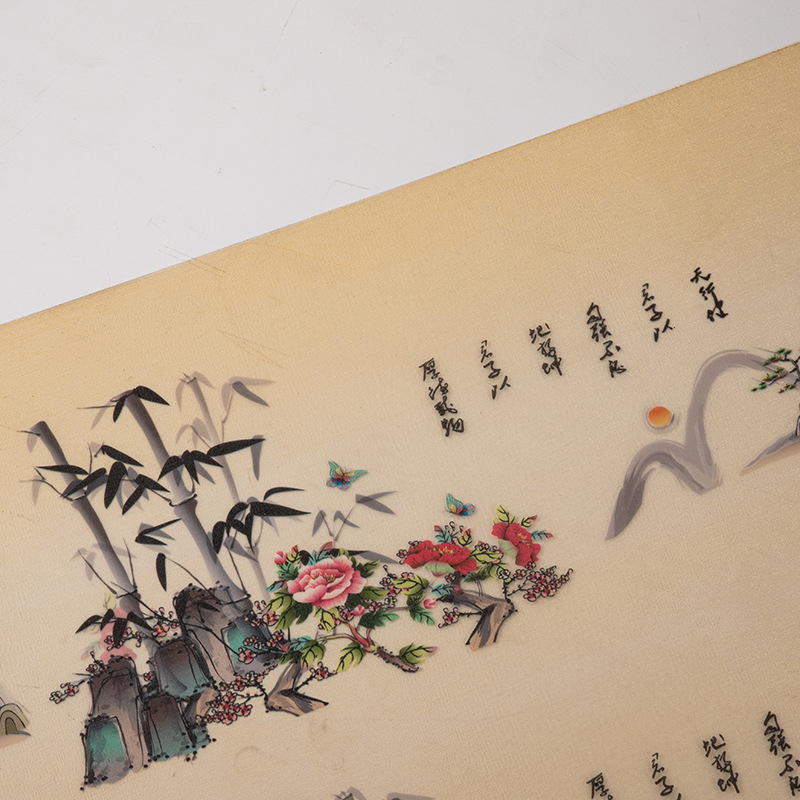 天行健
君子以
自强不息
地势坤
君子以
厚德载物
自强不息
地势坤
君子以
厚